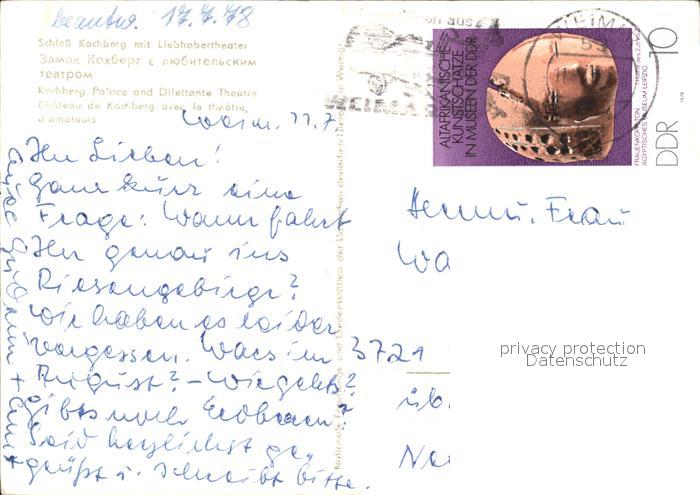 beantw. 17.7.78
Schloß Kochberg mit Liebhabertheater
Замок Кохберг с любительским
театром
Kochberg Palace and Dilettante Theatre
Château de Kochberg avec le théâtre,
d'amateurs
Weim. 11.7.
Ihr Lieben!
Ganz kurz eine
Frage: Wann fahrt
Ihr genau ins
Riesengebirge?
Wir haben es leider
vergessen. War's im
August? – Wie geht's?
Gibt's noch Erdbeeren?
Seid herzlichst ge-
grüßt u. schreibt bitte.
aus
WEIMAR
ALTAFRIKANISCHE
KUNSTSCHÄTZE
IN MUSEEN DER DDR
ÄGYPTISCHES MUSEUM LEIPZIG
10
DDR
1978
Herrn u. Frau
Wa
3721
üb.
privacy protection
Datenschutz